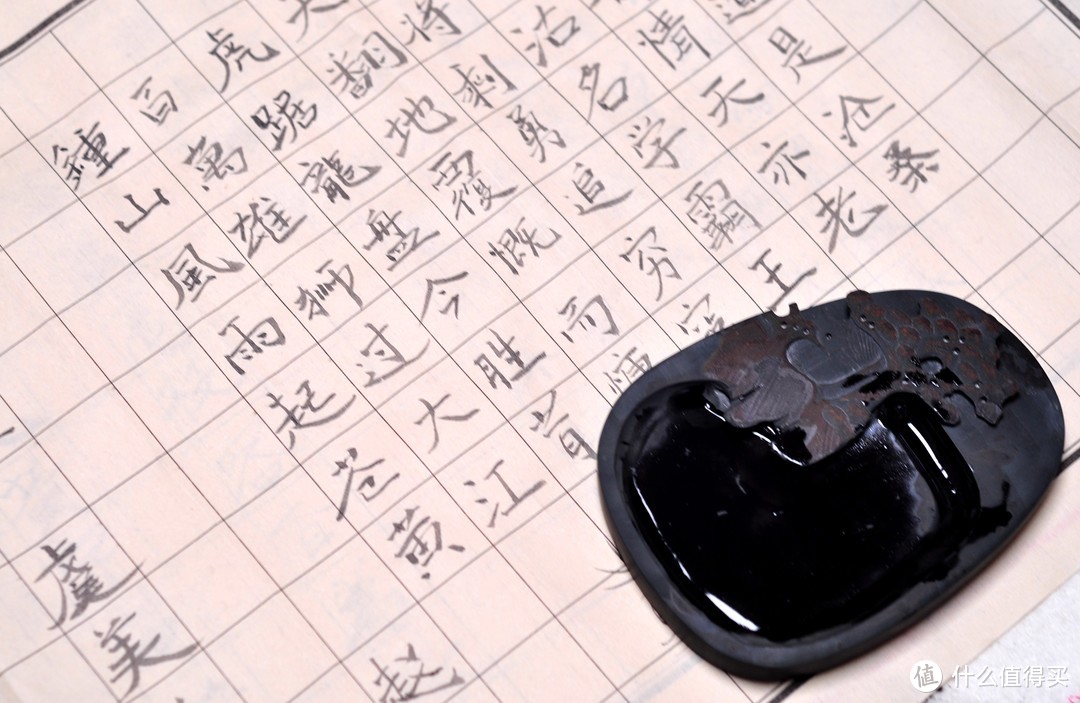 鍾山風雨起苍黄
百萬雄狮过大江
虎踞龍盘今胜昔
翻地覆慨而慷
将剩勇追穷寇
沽名学霸王
情天亦老
道是沧桑
虞美
赵
值 什么值得买